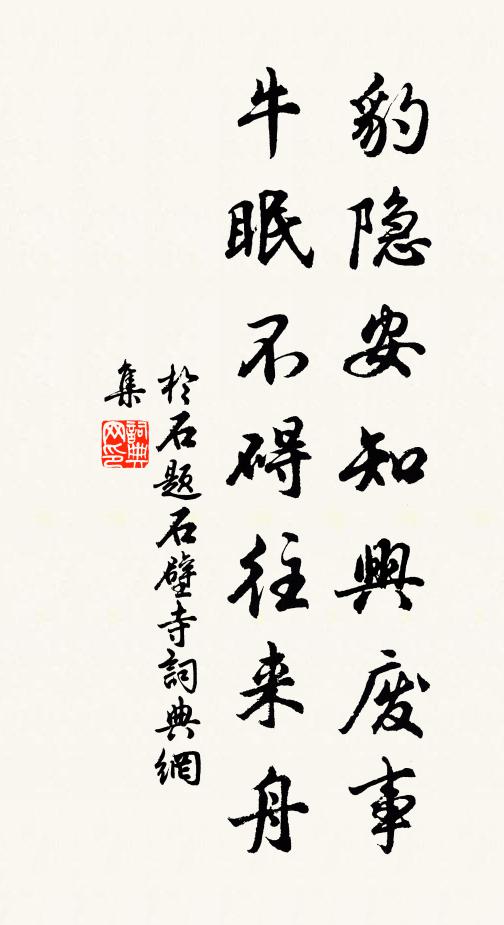 豹隐安知興废事
牛眠不碍往来舟
於石题石壁寺詞典網
集
詞典
网印